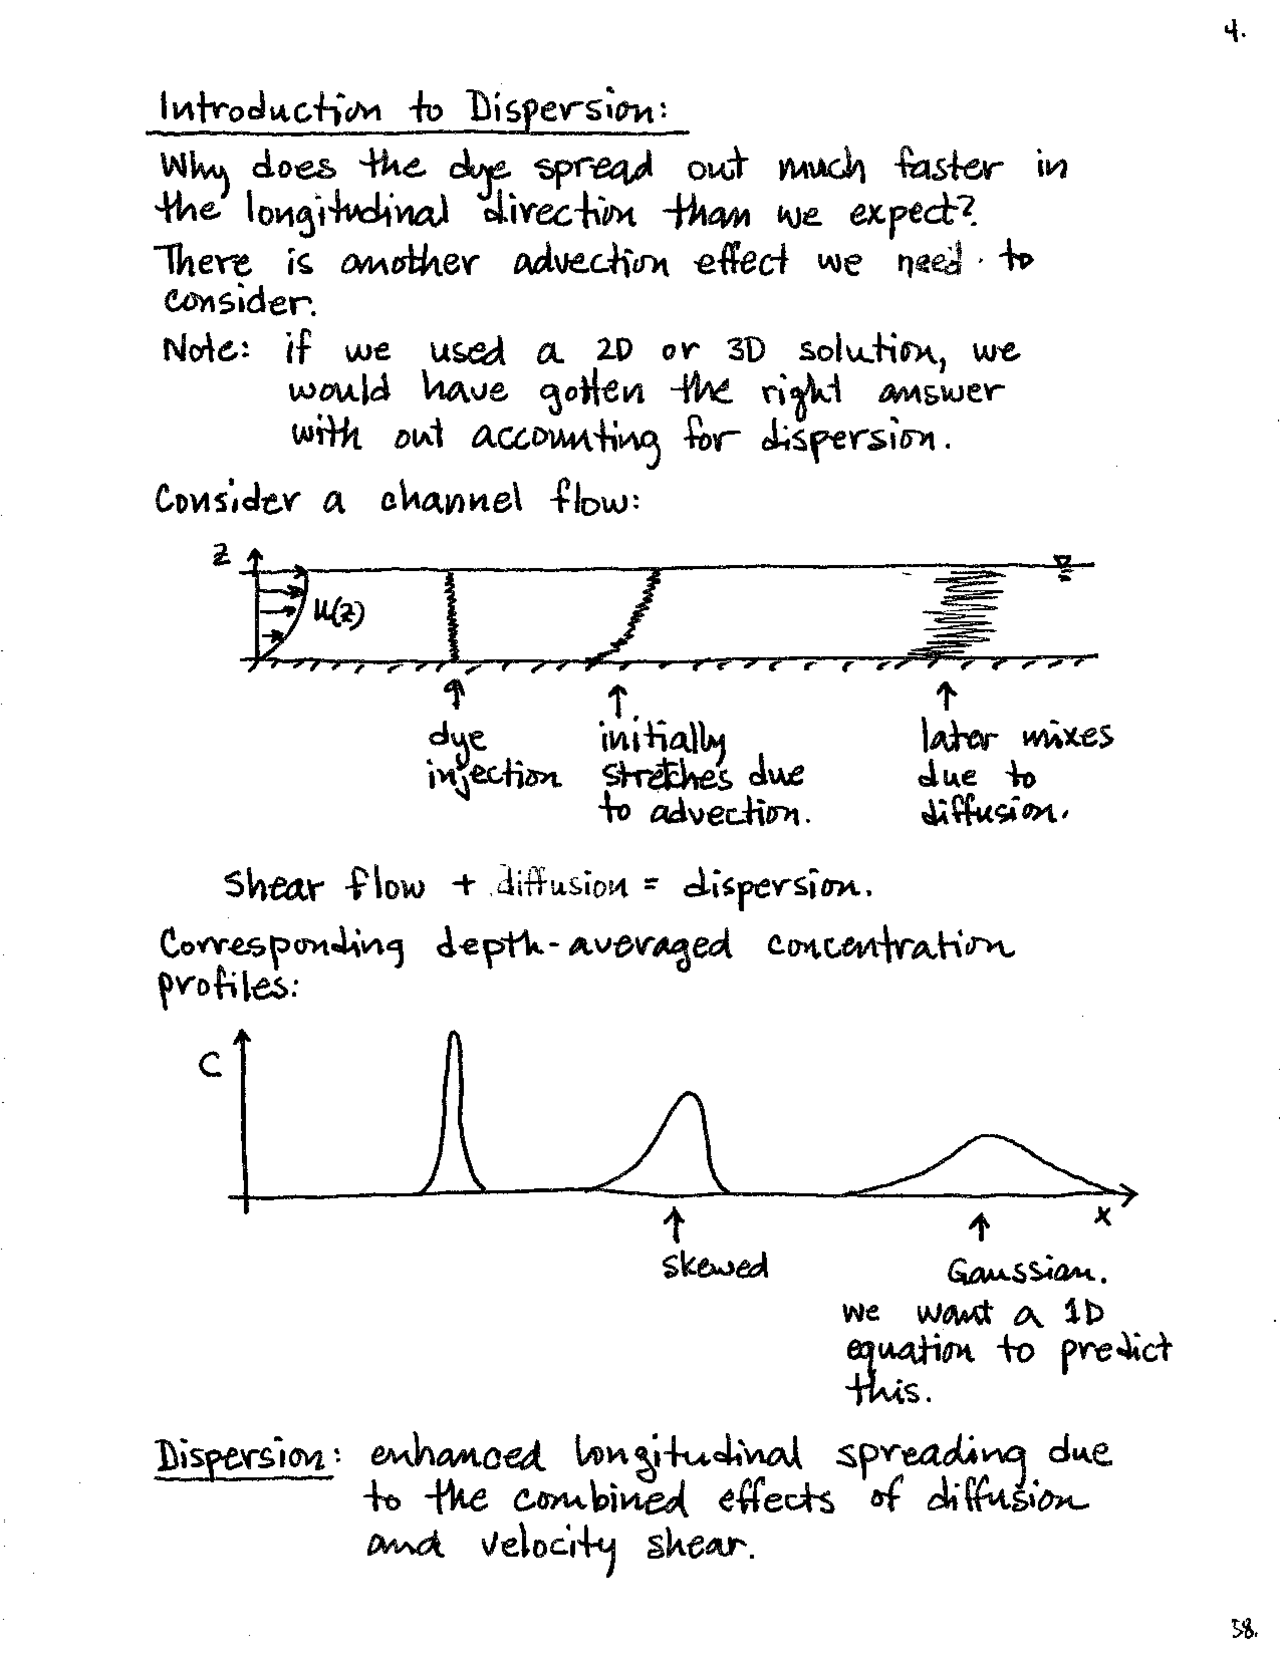 4.
Introduction to Dispersion:
Why does the dye spread out much faster in
the longitudinal direction than we expect?
There is another advection effect we need to
consider.
Note: if we used a 2D or 3D solution, we
would have gotten the right answer
with out accounting for dispersion.
Consider a channel flow:
z
u(z)
dye
injection
initially
stretches due
to advection.
later mixes
due to
diffusion.
Shear flow + diffusion = dispersion.
Corresponding depth-averaged concentration
profiles:
C
x
skewed
Gaussian.
we want a 1D
equation to predict
this.
Dispersion: enhanced longitudinal spreading due
to the combined effects of diffusion
and velocity shear.
58.